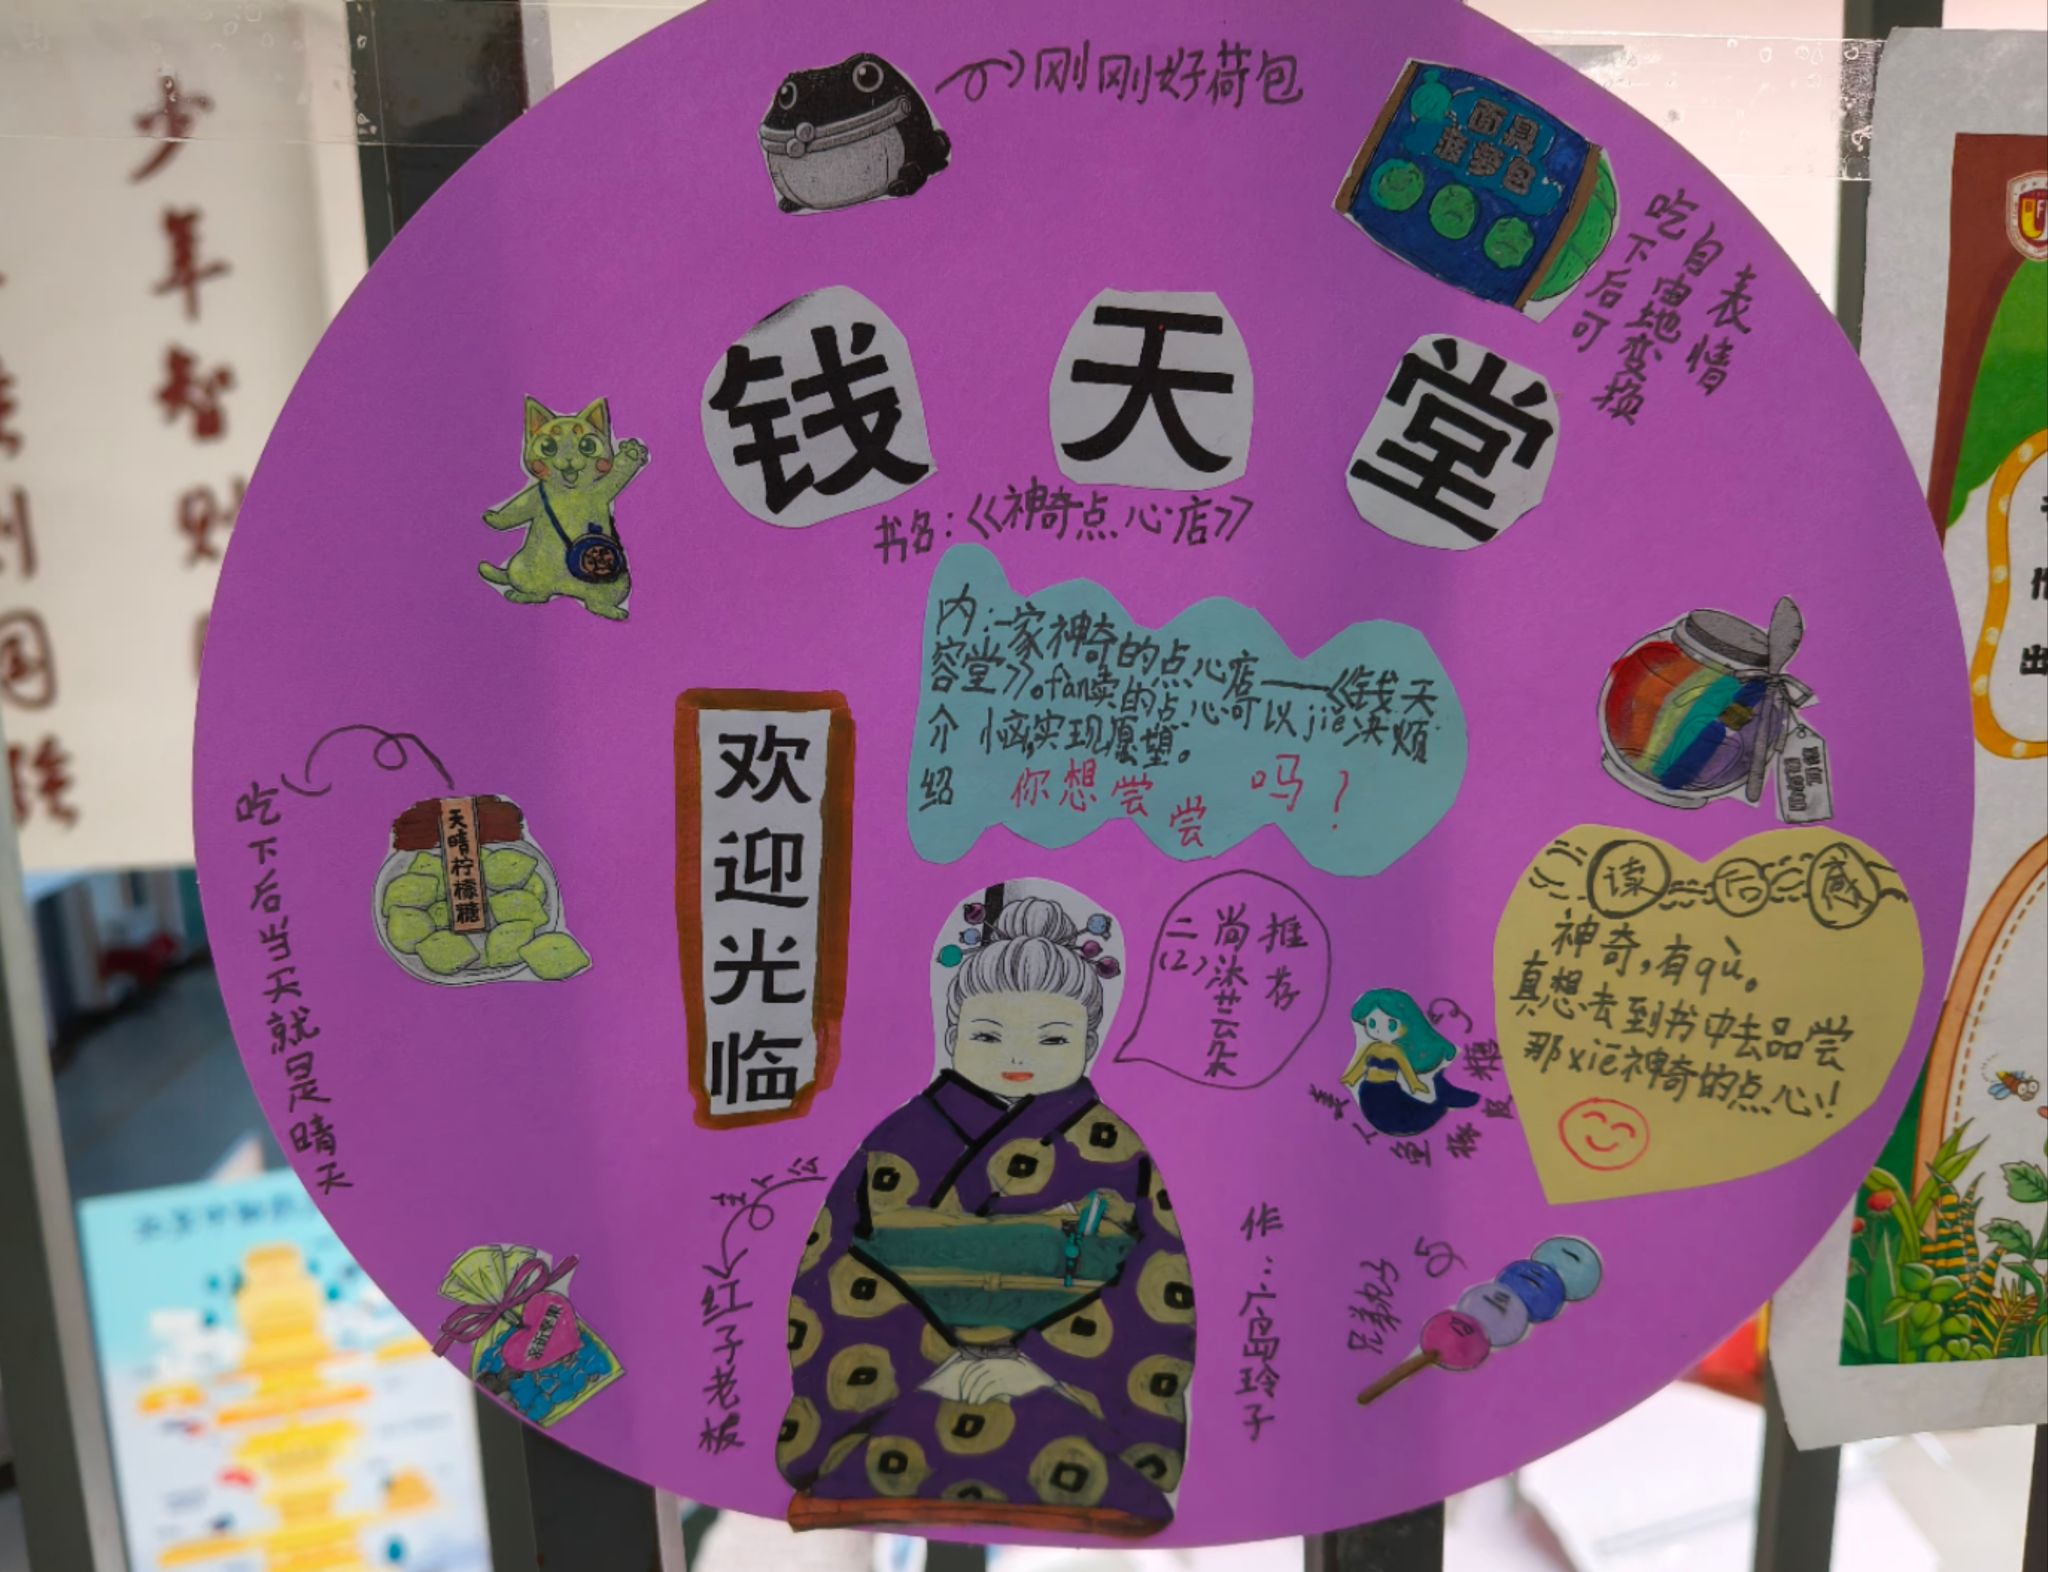 少年智则国
刚刚好荷包
面具
菠萝包
吃下后可
自由地变换
表情
钱天堂
书名:《神奇点心店》
内容介绍
:一家神奇的点心店——《钱天
堂》。fan卖的点心可以jiě决烦
恼,实现愿望。
你想尝尝吗?
欢迎光临
吃下后当天就是晴天
天晴柠檬糖
读后感
神奇,有qù。
真想去到书中去品尝
那xiē神奇的点心!
二(2)
尚沐芸朵
推荐
美人鱼橡皮糖
主人公
红子老板
作:广岛玲子
兄弟丸子